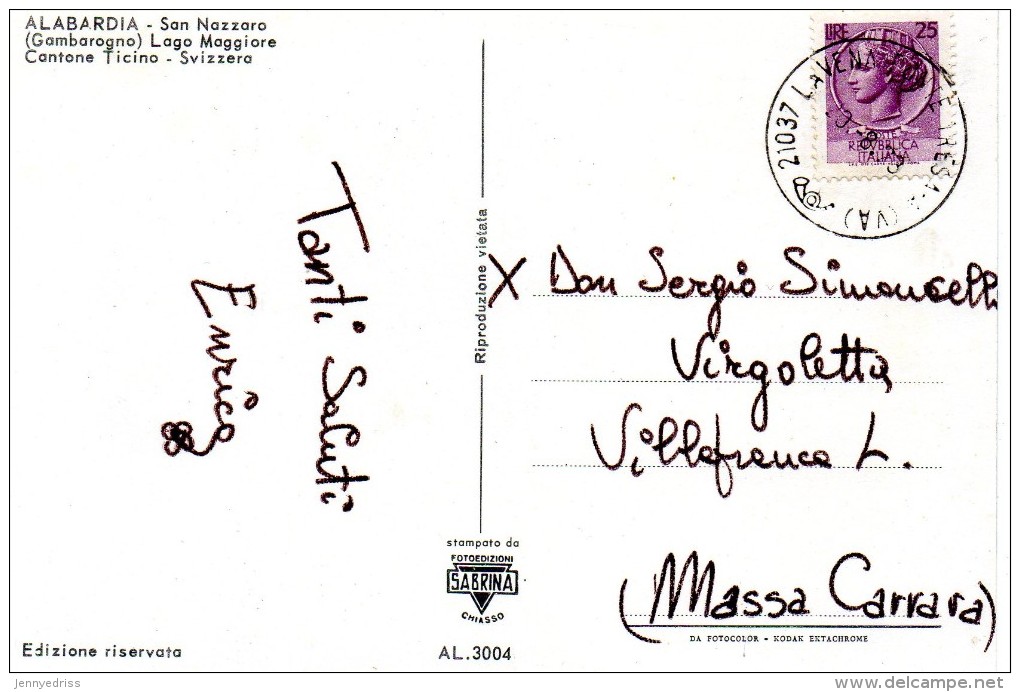 ALABARDIA - San Nazzaro
(Gambarogno) Lago Maggiore
Cantone Ticino - Svizzera
Tanti Saluti
Enrico
Riproduzione vietata
LIRE 25
POSTE
REPVBBLICA
ITALIANA
21037 LAVENA PONTE TRESA (VA)
X Don Sergio Simoncelli
Virgoletta
Villafranca L.
(Massa Carrara)
stampato da
FOTOEDIZIONI
SABRINA
CHIASSO
DA FOTOCOLOR - KODAK EKTACHROME
Edizione riservata
AL.3004
jennyedriss
delcampe.net